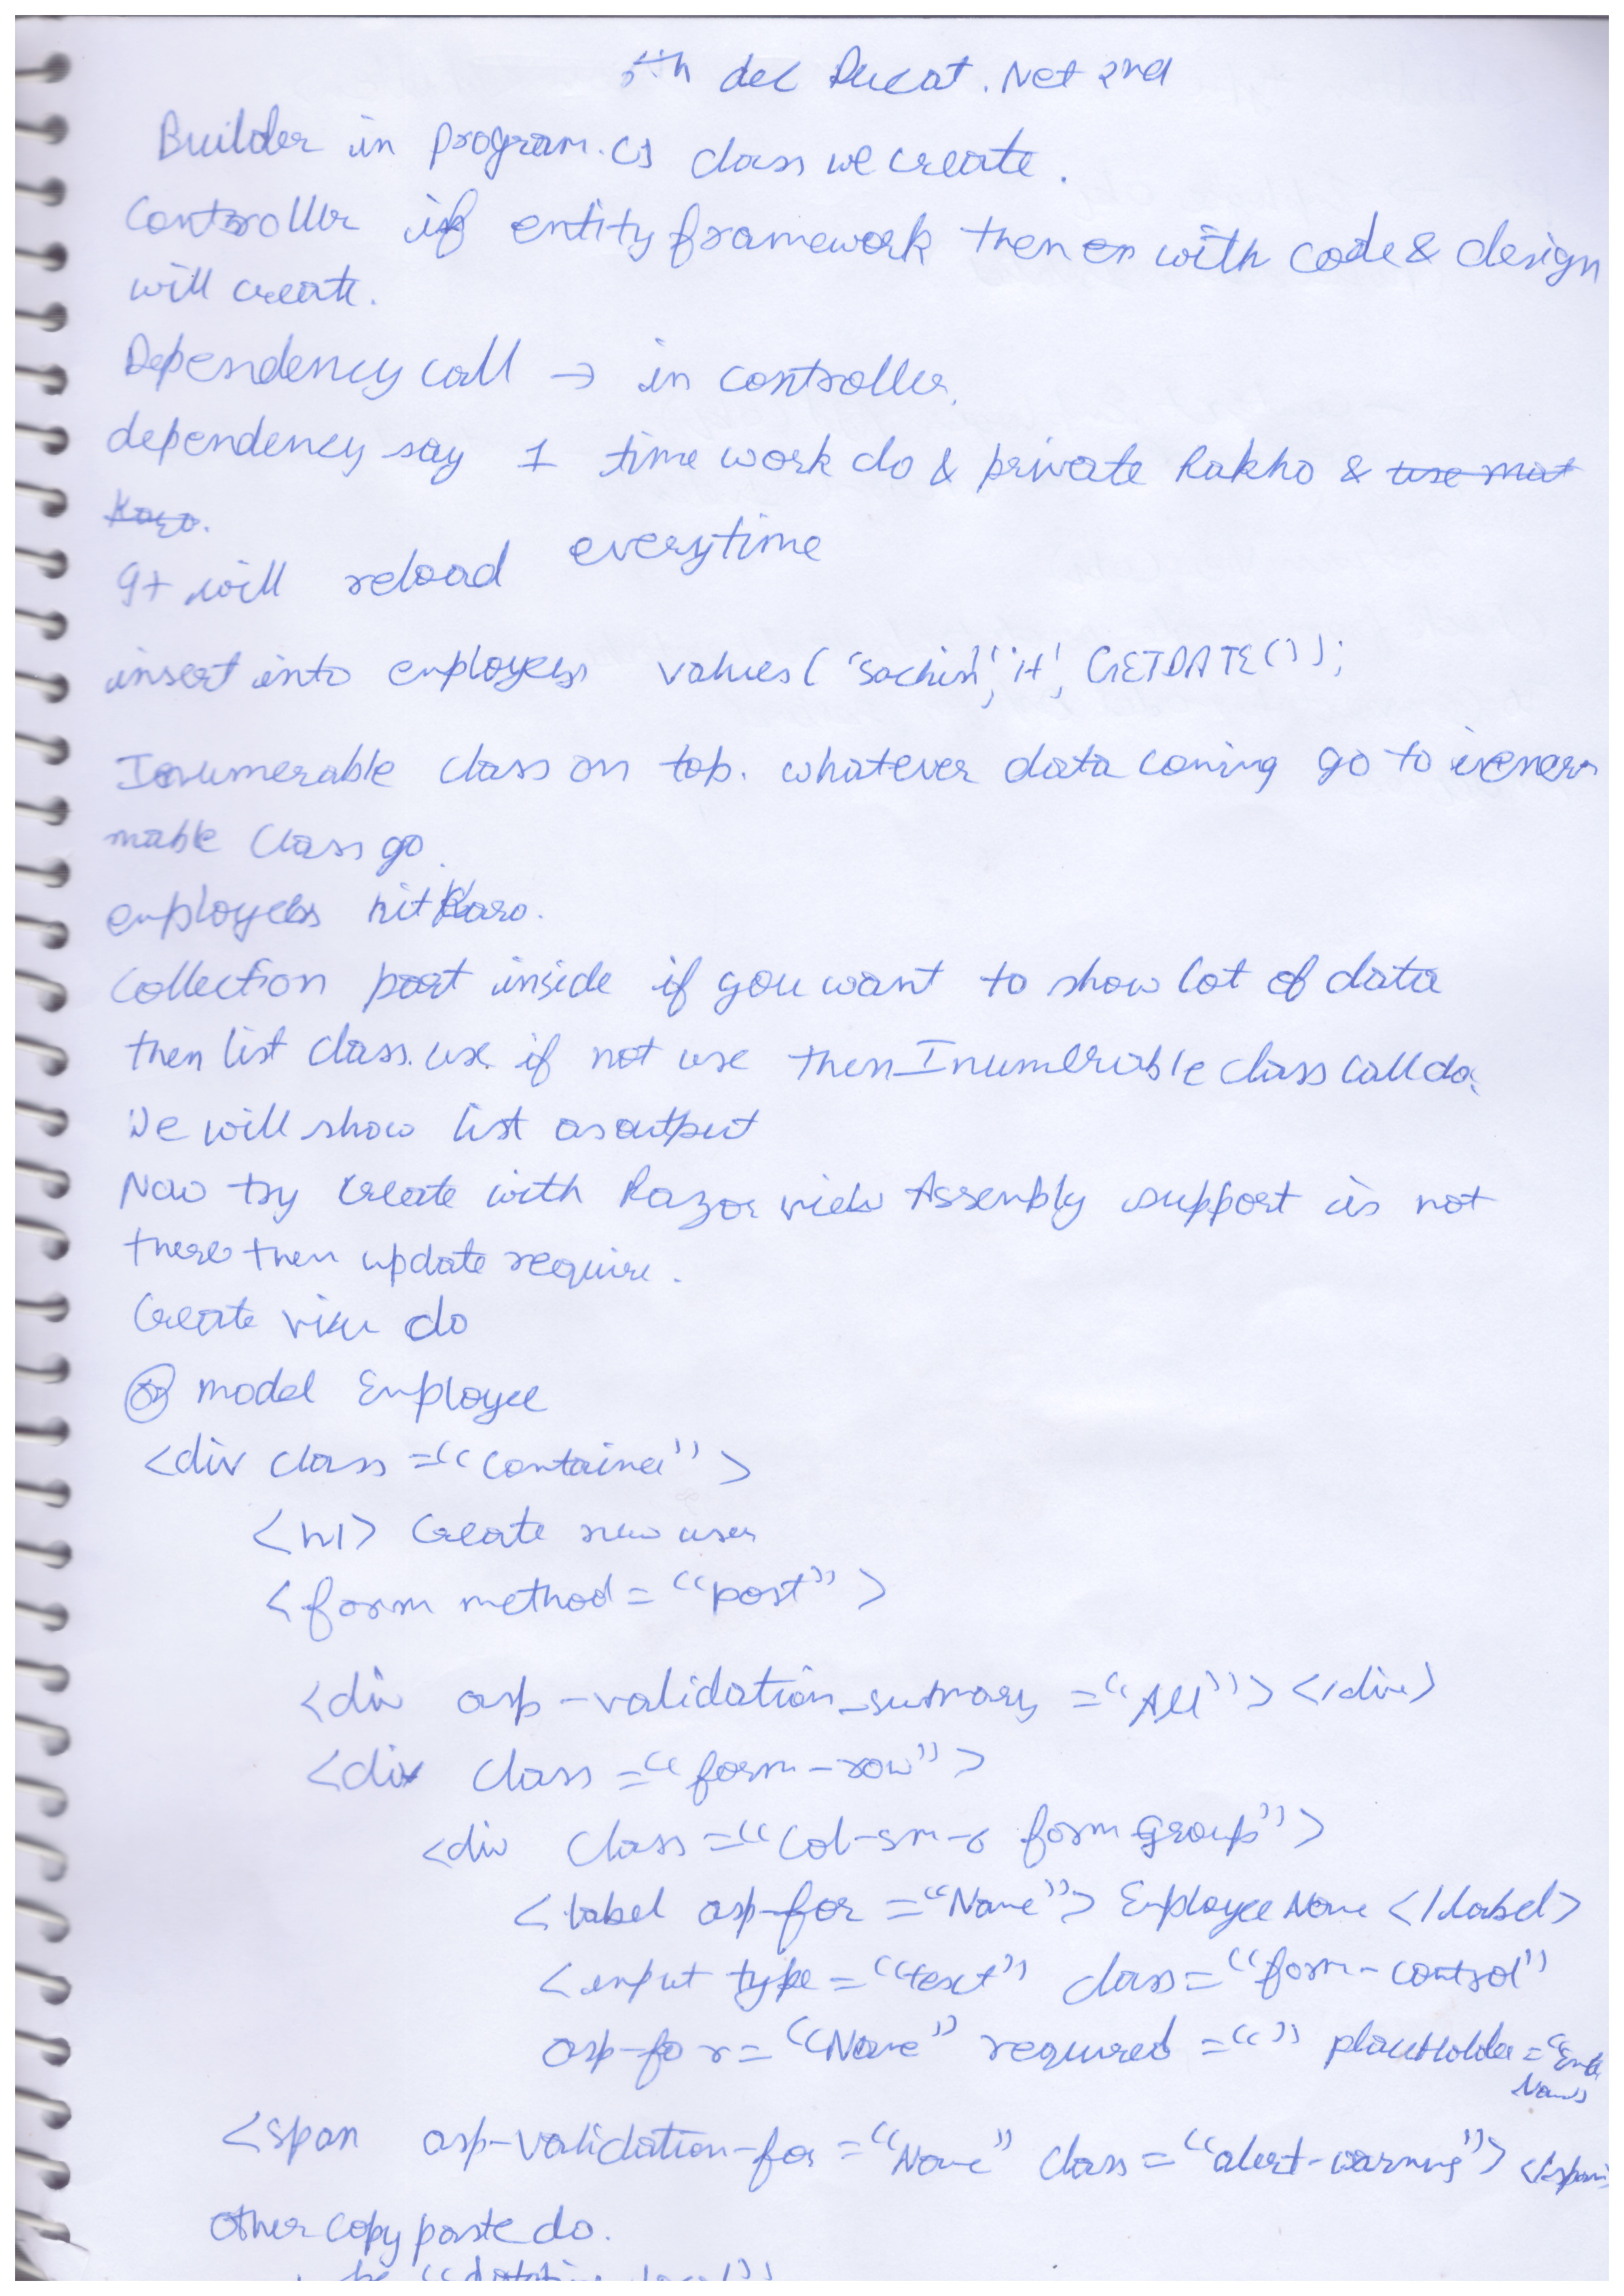 5th dec Ducat .Net 2nd
Builder in program.cs class we create.
Controller if entity framework then with code & design
will create.
Dependency call → in controller.
dependency say 1 time work do & private Rakho & use mat
Karo.
It will reload everytime
insert into employees values('sachin','it', GETDATE());
Ienumerable class on top. whatever data coming go to
mable Class go.
employees hit Karo.
Collection part inside if you want to show lot of data
then list class. use. if not use then Inumerable class call do.
We will show list as output
Now try create with Razor view Assembly support is not
there then update require.
Create view do
@ model Employee
<div class="container">
<h1> Create new user
<form method="post">
<div asp-validation_summary="All"></div>
<div class="form-row">
<div class="col-sm-6 form Group">
<label asp-for="Name"> Employee Name </label>
<input type="text" class="form-control"
asp-for="Name" required="" placeholder="Enter
Name"
<span asp-validation-for="Name" class="alert-warning"> </span>
Other copy paste do.